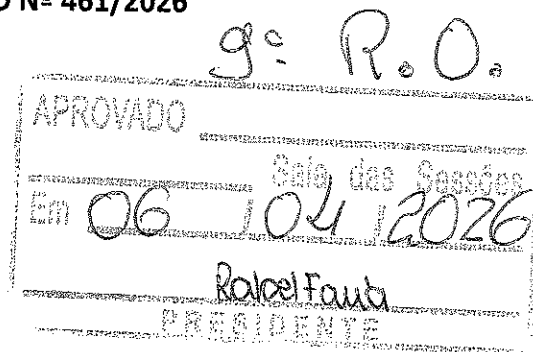 O Nº 461/2026
9ª R.O.
APROVADO
Sala das Sessões
Em 06 / 04 / 2026
PRESIDENTE